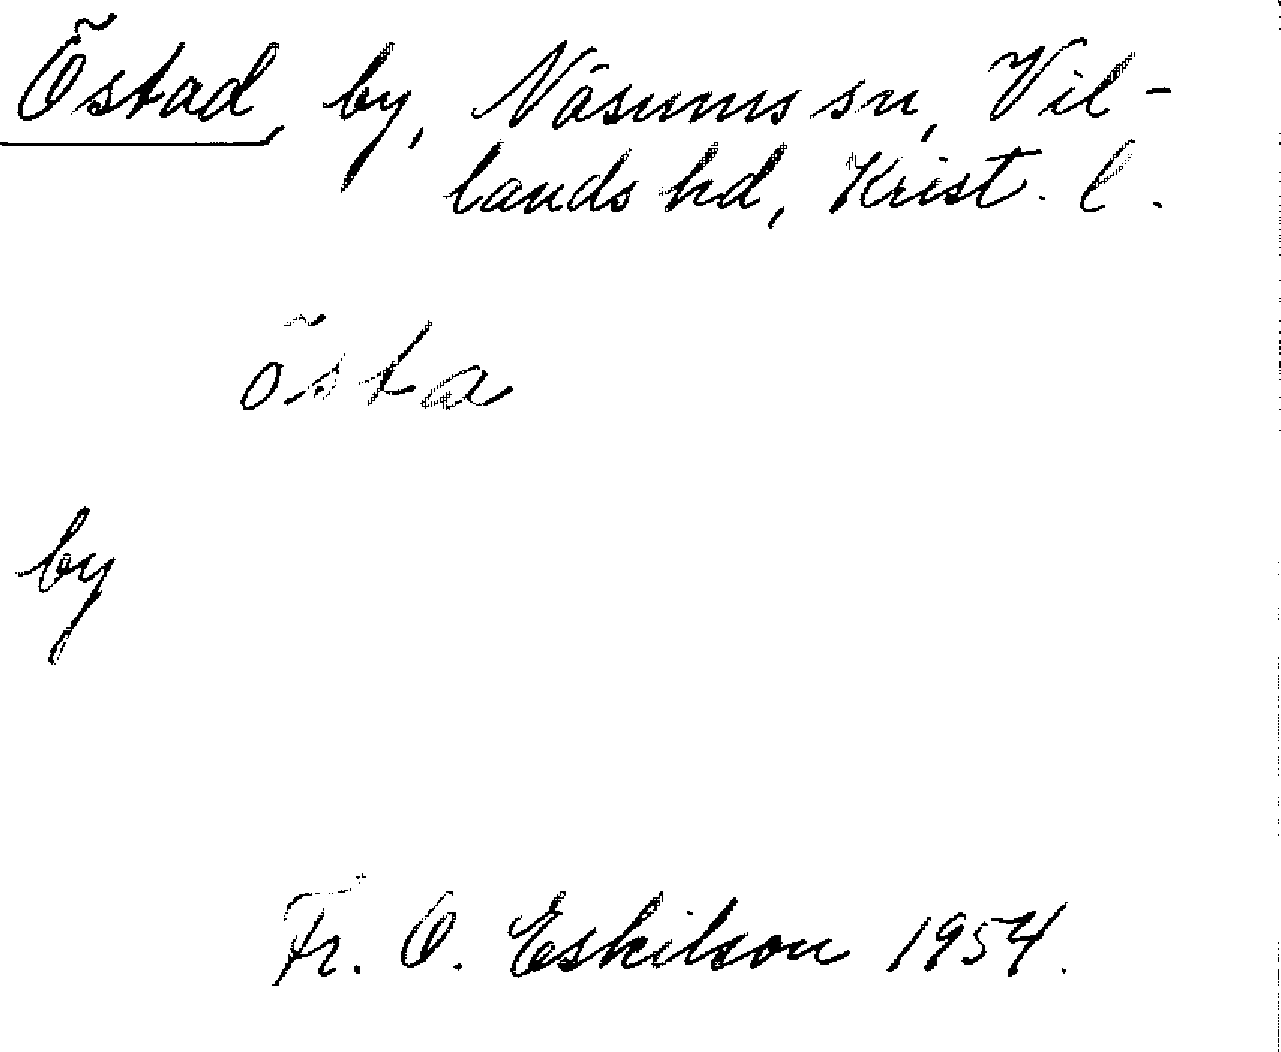 Östad, by, Näsums sn, Vil-
lands hd, Krist. l.
östa
by
Fr. O. Eskilson 1954.